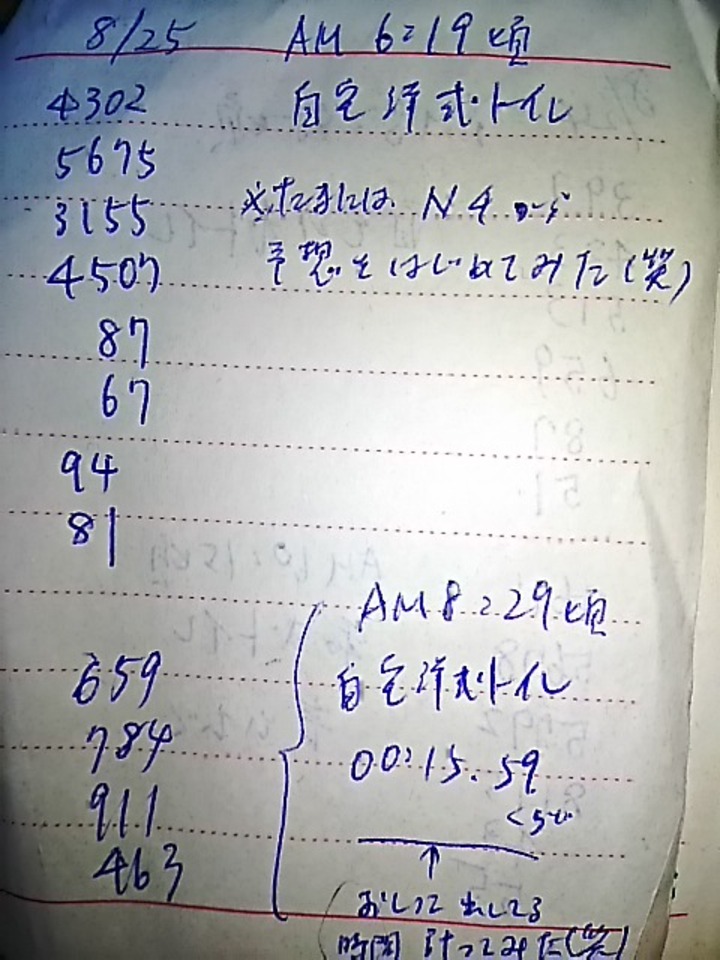 8/25 AM 6:19頃
4302 自宅洋式トイレ
5675
3155 ※たまには N4
4507 予想をはじめてみた(笑)
87
67
94
81
AM 8:29頃
659 自宅洋式トイレ
784 00:15.59
911 くらい
463 ↑
おしっこ出してる
時間 計ってみた(笑)